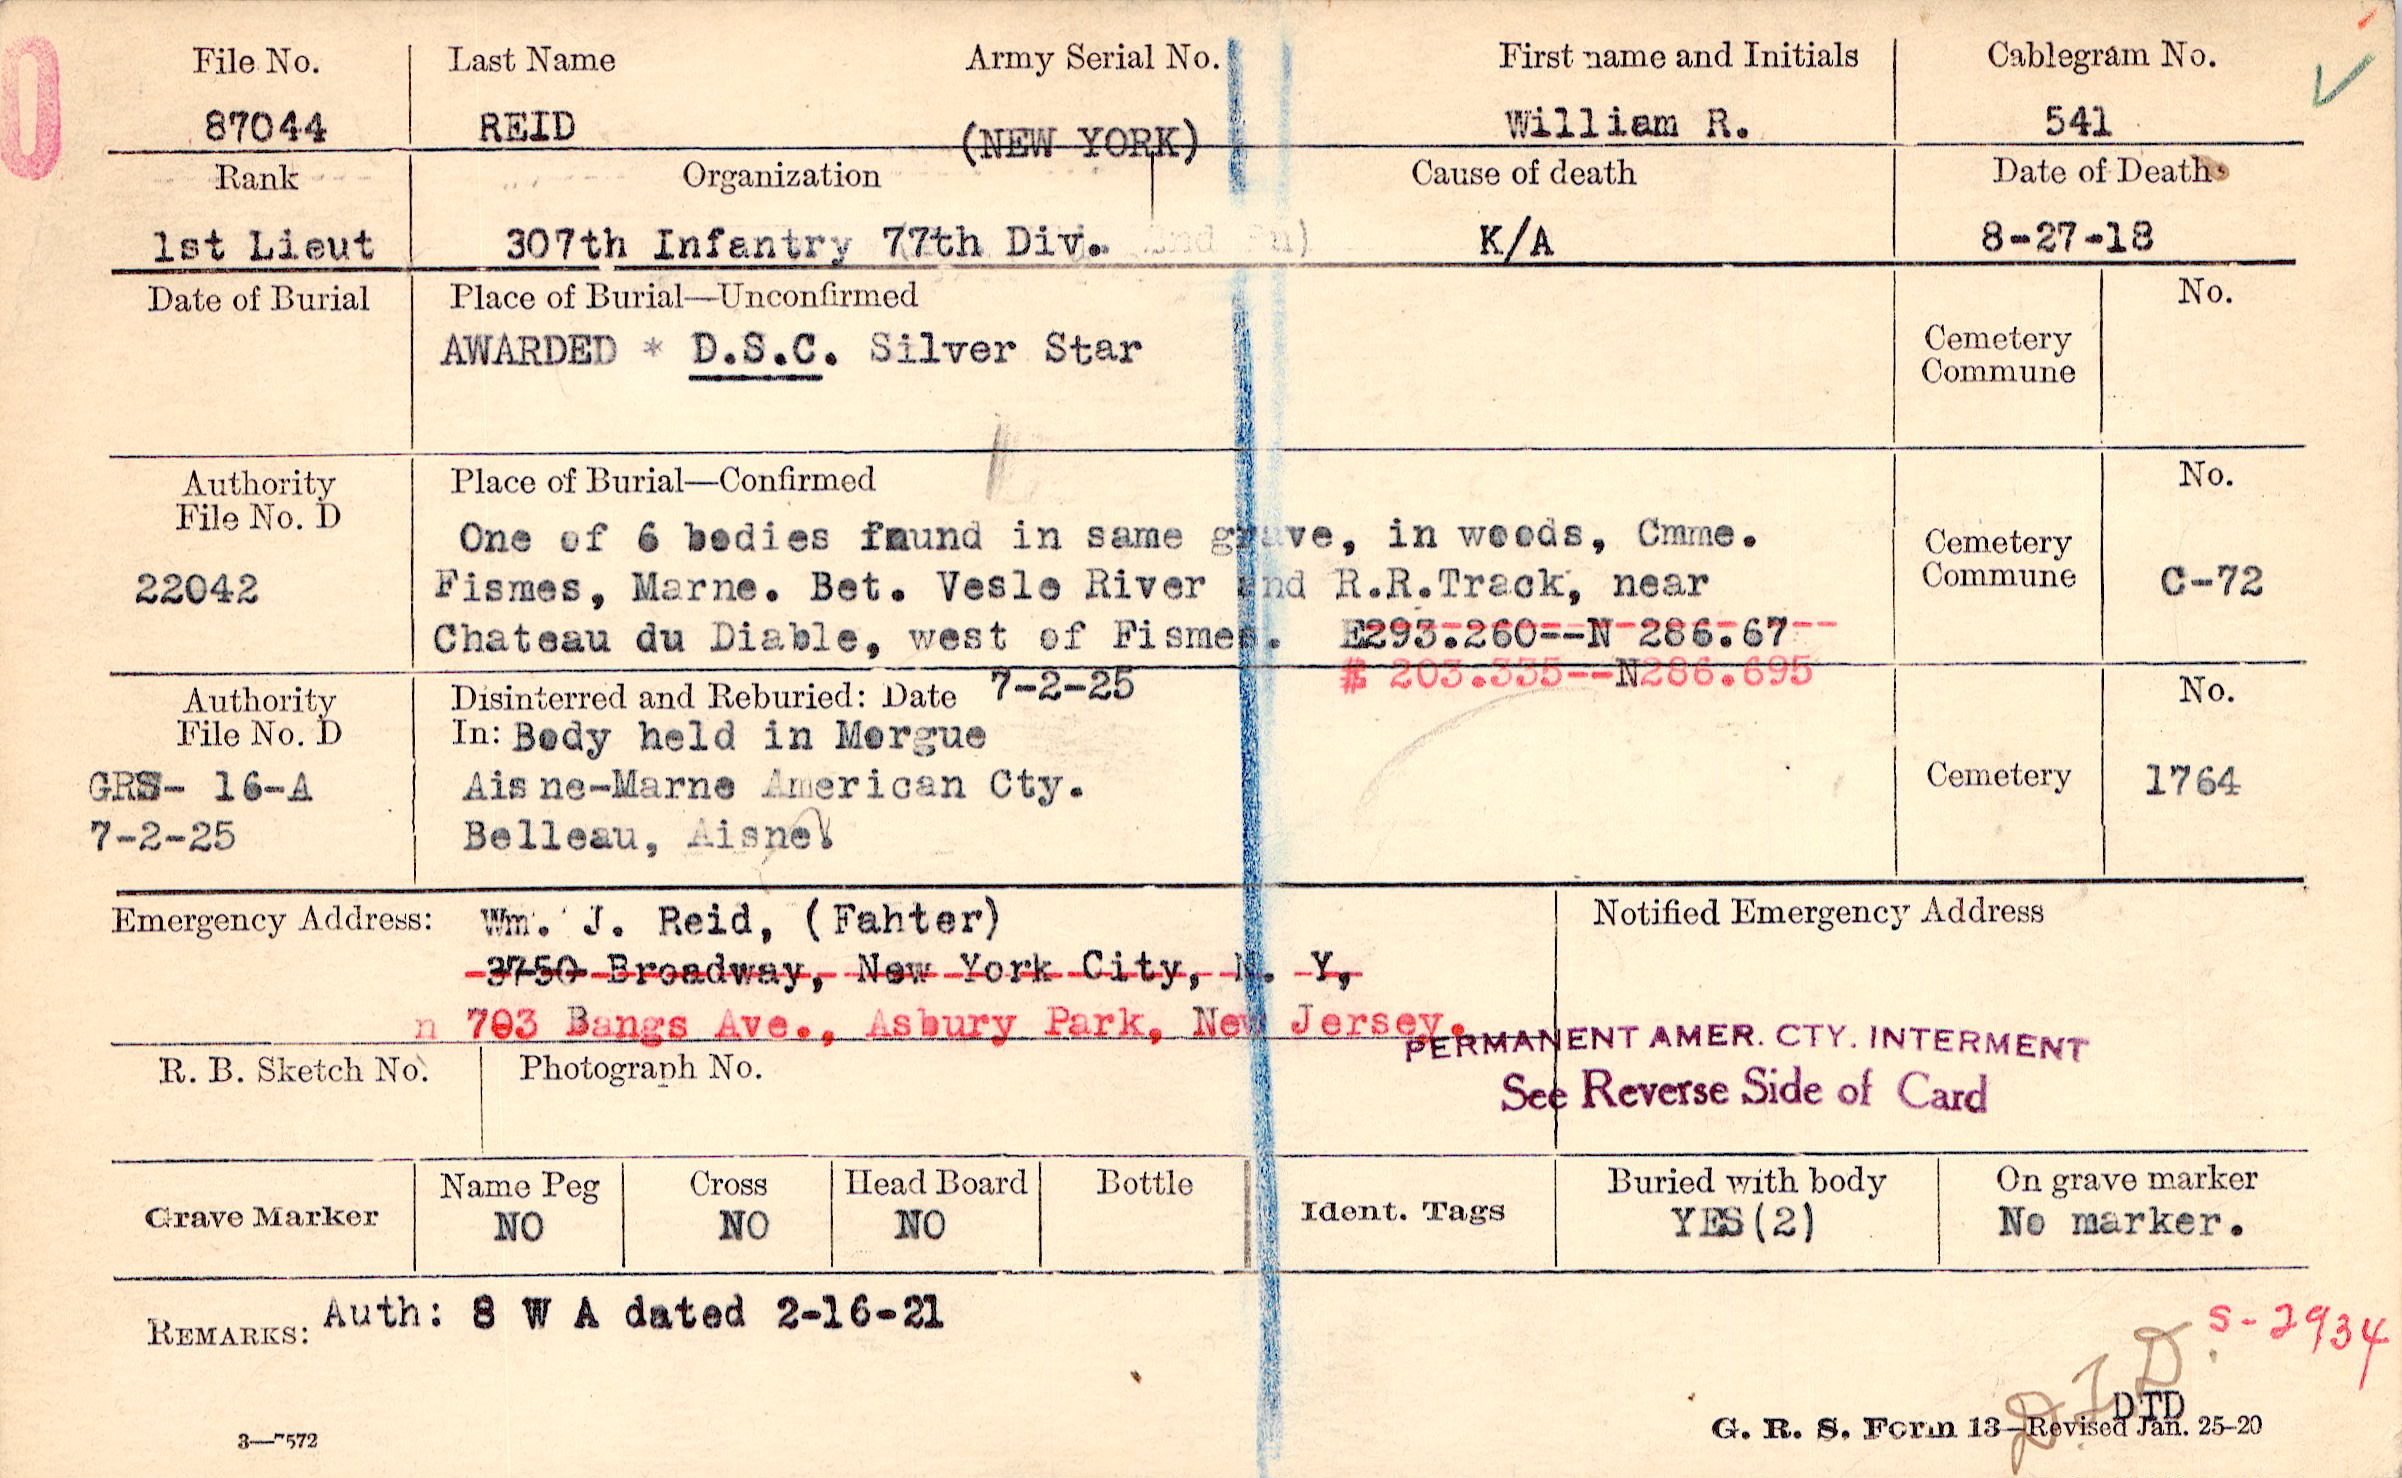 File No. Last Name Army Serial No. First name and Initials Cablegram No.
87044 REID (NEW YORK) William R. 541
Rank Organization Cause of death Date of Death
1st Lieut 307th Infantry 77th Div. K/A 8-27-18
Date of Burial Place of Burial—Unconfirmed No.
AWARDED * D.S.C. Silver Star
Cemetery
Commune
Authority Place of Burial—Confirmed No.
File No. D
One of 6 bodies found in same grave, in woods, Cmme.
Cemetery
22042 Fismes, Marne. Bet. Vesle River and R.R.Track, near Commune C-72
Chateau du Diable, west of Fismes. E293.260--N 286.67
203.335--N286.695
Authority Disinterred and Reburied: Date 7-2-25 No.
File No. D In: Body held in Morgue
GRS- 16-A Aisne-Marne American Cty. Cemetery 1764
7-2-25 Belleau, Aisne.
Emergency Address: Wm. J. Reid, (Fahter) Notified Emergency Address
3750 Broadway, New York City, N. Y,
n 703 Bangs Ave., Asbury Park, New Jersey.
PERMANENT AMER. CTY. INTERMENT
See Reverse Side of Card
R. B. Sketch No. Photograph No.
Grave Marker Name Peg Cross Head Board Bottle Ident. Tags Buried with body On grave marker
NO NO NO YES(2) No marker.
REMARKS: Auth: S W A dated 2-16-21
S-2934
D.T.D.
DTD
3—7572 G. R. S. Form 13—Revised Jan. 25-20